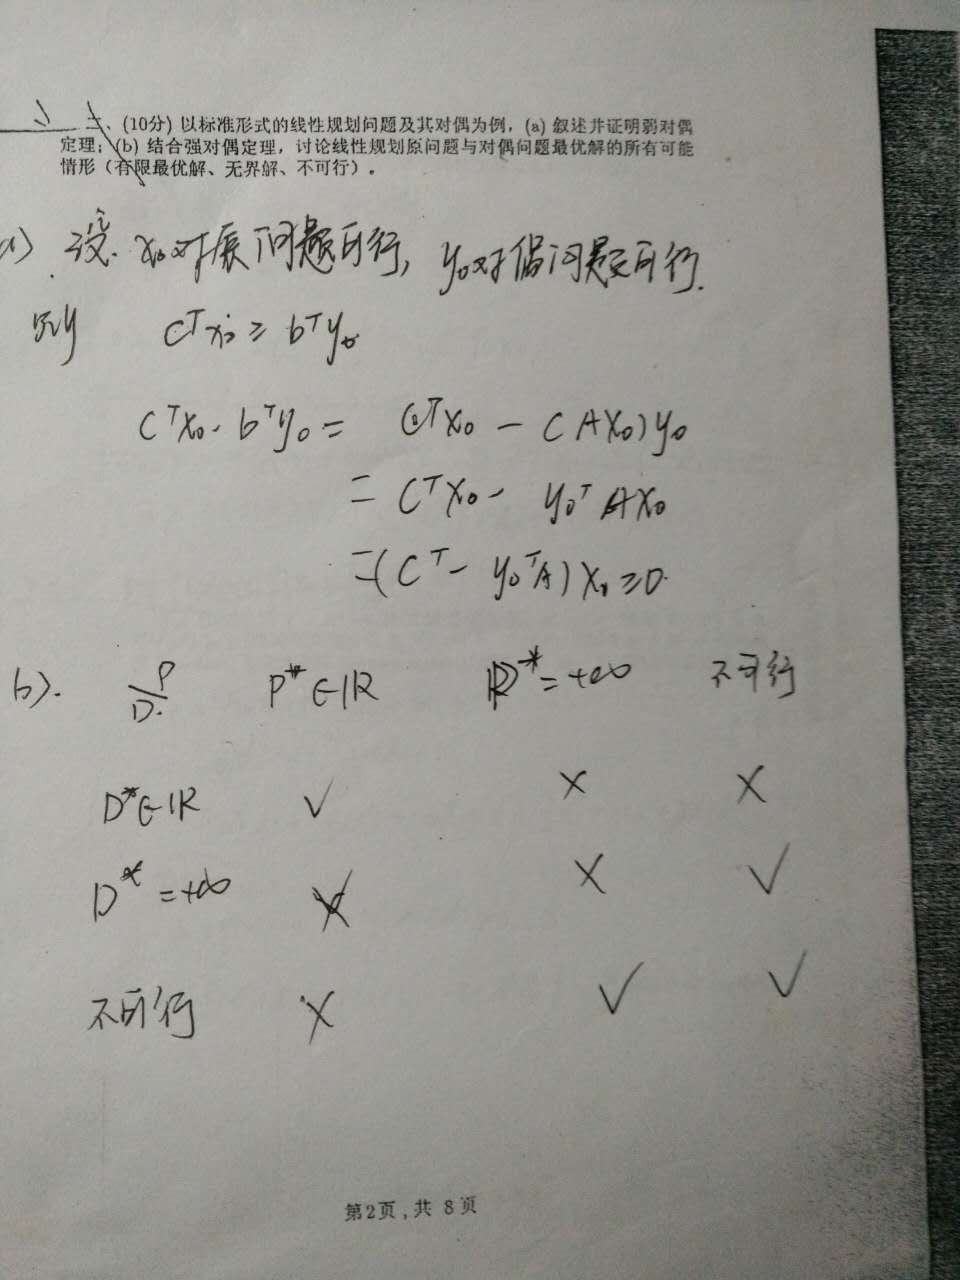 二、(10分) 以标准形式的线性规划问题及其对偶为例，(a) 叙述并证明弱对偶
定理；(b) 结合强对偶定理，讨论线性规划原问题与对偶问题最优解的所有可能
情形（有限最优解、无界解、不可行）。
a) 设 x₀对原问题可行, y₀对偶问题可行.
则 cᵀx₀ ≥ bᵀy₀
cᵀx₀ - bᵀy₀ = cᵀx₀ - (Ax₀)y₀
= cᵀx₀ - y₀ᵀAx₀
= (cᵀ - y₀ᵀA)x₀ ≥ 0.
b). P/D. P*∈IR P*=+∞ 不可行
D*∈IR ✓ × ×
D*=+∞ × × ✓
不可行 × ✓ ✓
第2页,共 8 页